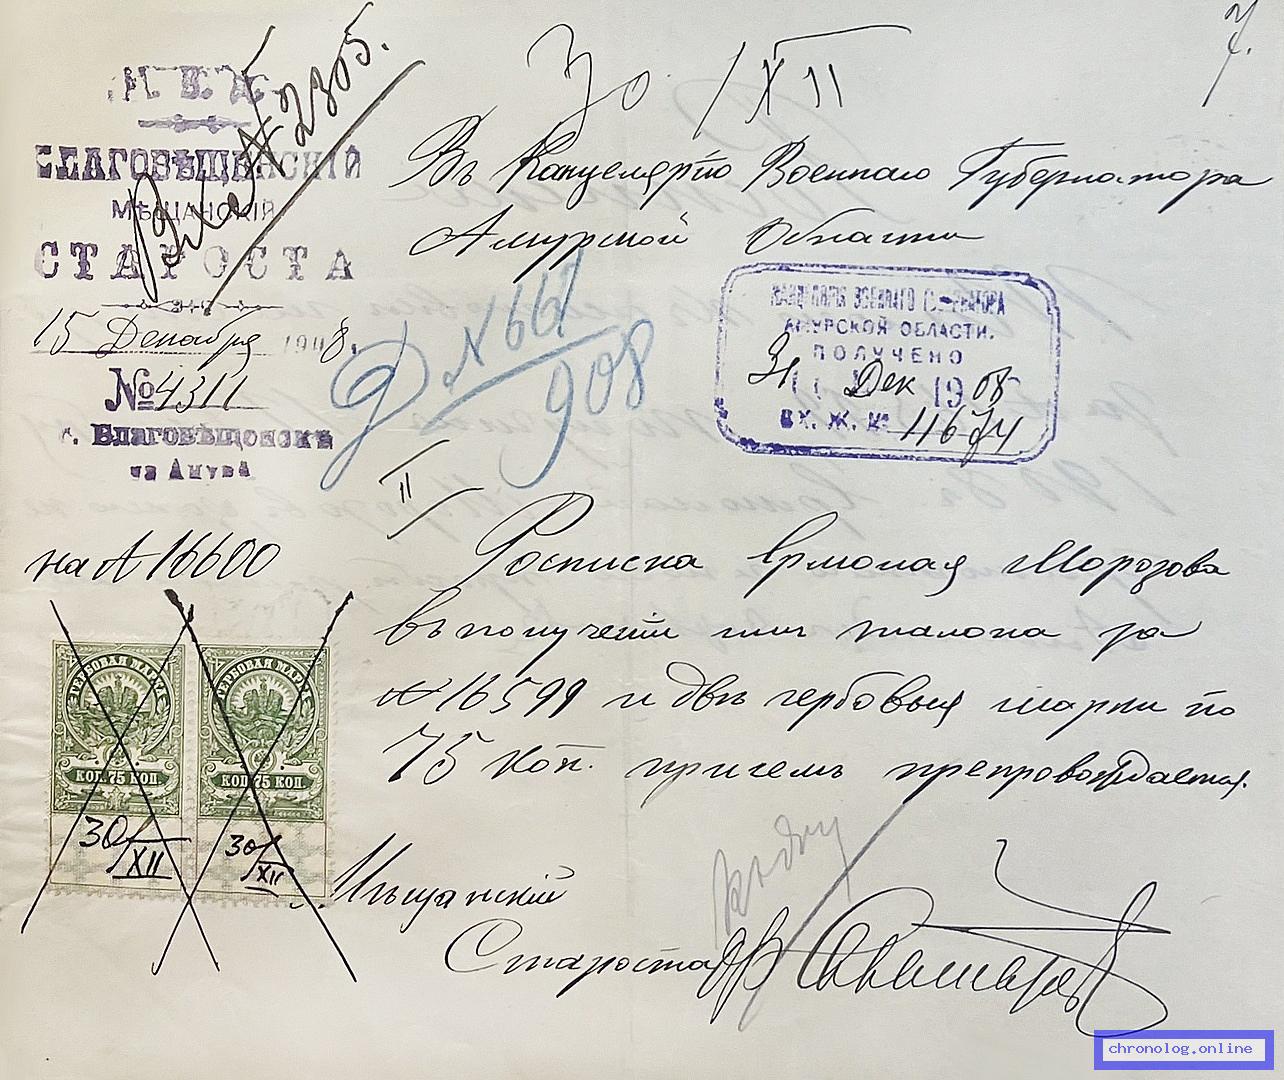 7.
30/XII
М. В. Д.
БЛАГОВѢЩЕНСКІЙ
МѢЩАНСКІЙ
СТАРОСТА
15 Декабря 1908 г.
№ 4311
г. Благовѣщенскъ
на Амурѣ
№ 2305.
Въ Канцелярію Военнаго Губернатора
Амурской Области
Д № 667/908
КАНЦЕЛЯРІЯ ВОЕННАГО ГУБЕРНАТОРА
АМУРСКОЙ ОБЛАСТИ.
ПОЛУЧЕНО
31 Дек 1908
ВХ. Ж. № 11674
II
на № 16600
Росписка Ермолая Морозова
въ полученіи имъ талона за
№ 16599 и двѣ гербовыя марки по
75 коп. при семъ препровождается.
ГЕРБОВАЯ МАРКА
КОП. 75 КОП.
30/XII
ГЕРБОВАЯ МАРКА
КОП. 75 КОП.
30/XII
Мѣщанскій
Староста
chronolog.online